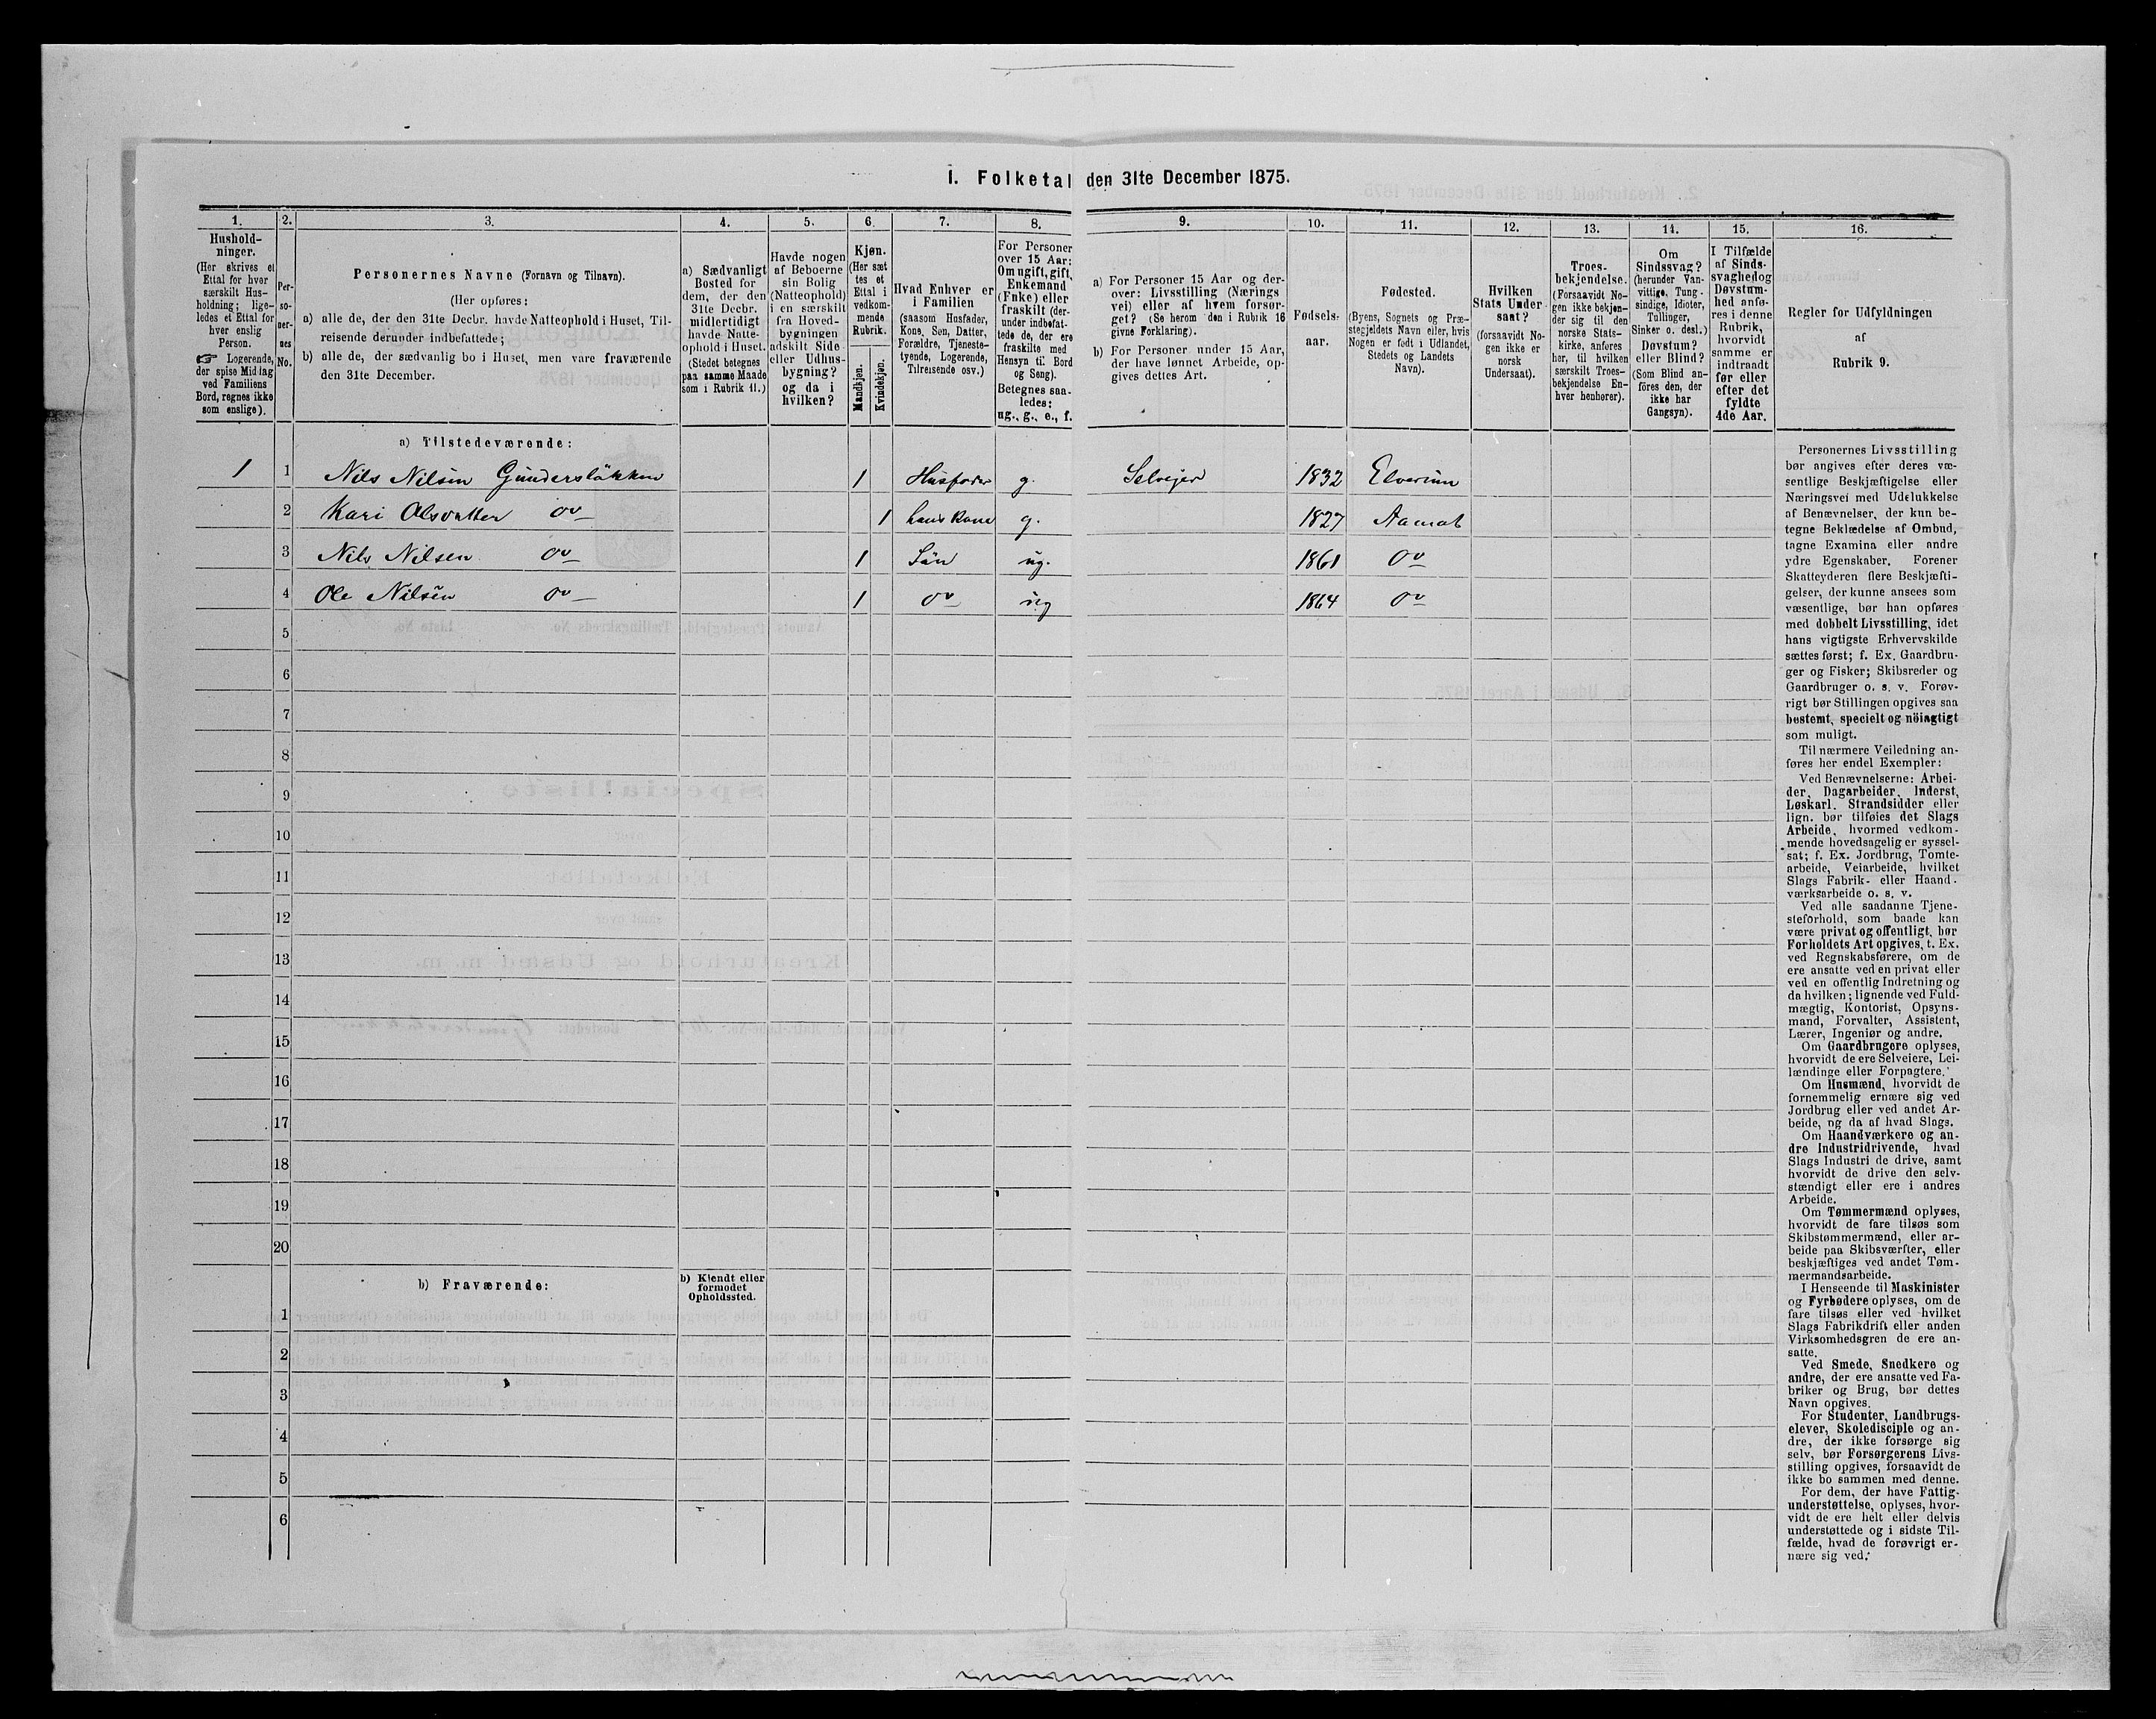 1. Folketal den 31te December 1875.
1. 2. 3. 4. 5. 6. 7. 8. 9. 10. 11. 12. 13. 14. 15. 16.
Hushold-
ninger.
(Her skrives et
Ettal for hver
særskilt Hus-
holdning; lige-
ledes et Ettal for
hver enslig
Person.
☞ Logerende,
der spise Middag
ved Familiens
Bord, regnes ikke
som enslige).
Per-
so-
ner-
nes
No.
Personernes Navne (Fornavn og Tilnavn).
(Her opføres:
a) alle de, der den 31te Decbr. havde Natteophold i Huset, Til-
reisende derunder indbefattede;
b) alle de, der sædvanlig bo i Huset, men vare fraværende
den 31te December.
a) Sædvanligt
Bosted for
dem, der den
31te Decbr.
midlertidigt
havde Natte-
ophold i Huset.
(Stedet betegnes
paa samme Maade
som i Rubrik 11.)
Havde nogen
af Beboerne
sin Bolig
(Natteophold)
i en særskilt
fra Hoved-
bygningen
adskilt Side
eller Udhus-
bygning?
og da i
hvilken?
Kjøn.
(Her sæt
tes et
Ettal i
vedkom-
mende
Rubrik.
Mandkjøn.
Kvindekjøn.
Hvad Enhver er
i Familien
(saasom Husfader,
Kone, Søn, Datter,
Forældre, Tjeneste-
tyende, Logerende,
Tilreisende osv.)
For Personer
over 15 Aar:
Om ugift, gift,
Enkemand
(Enke) eller
fraskilt (der-
under indbefat-
tede de, der ere
fraskilte med
Hensyn til Bord
og Seng).
Betegnes saa-
ledes:
ug., g., e., f.
a) For Personer 15 Aar og der-
over: Livsstilling (Nærings
vei) eller af hvem forsør-
get? (Se herom den i Rubrik 16
givne Forklaring).
b) For Personer under 15 Aar,
der have lønnet Arbeide, op-
gives dettes Art.
Fødsels-
aar.
Fødested.
(Byens, Sognets og Præ-
stegjeldets Navn eller, hvis
Nogen er født i Udlandet,
Stedets og Landets
Navn).
Hvilken
Stats Under-
saat?
(forsaavidt No-
gen ikke er
norsk
Undersaat).
Troes-
bekjendelse.
(Forsaavidt No-
gen ikke bekjen-
der sig til den
norske Stats-
kirke, anføres
her, til hvilken
særskilt Troes-
bekjendelse En-
hver henhører).
Om
Sindssvag?
(herunder Van-
vittige, Tung-
sindige, Idioter,
Tullinger,
Sinker o. desl.)
Døvstum?
eller Blind?
(Som Blind an-
föres den, der
ikke har
Gangsyn).
I Tilfælde
af Sinds-
svaghed og
Døvstum-
hed anfø-
res i denne
Rubrik,
hvorvidt
samme er
indtraadt
før eller
efter det
fyldte
4de Aar.
Regler for Udfyldningen
af
Rubrik 9.
a) Tilstedeværende:
1 1 Nils Nilsen Gunderslökken 1 Husfader g. Selveier 1832 Elverum
2 Kari Olsdatter do 1 hans Kone g. 1827 Aamot
3 Nils Nilsen do 1 Sön ug. 1861 do
4 Ole Nilsen do 1 do ug 1864 do
5
6
7
8
9
10
11
12
13
14
15
16
17
18
19
20
b) Fraværende: b) Kjendt eller
formodet
Opholdssted.
1
2
3
4
5
6
Personernes Livsstilling
bør angives efter deres væ-
sentlige Beskjæftigelse eller
Næringsvei med Udelukkelse
af Benævnelser, der kun be-
tegne Beklædelse af Ombud,
tagne Examina eller andre
ydre Egenskaber. Forener
Skatteyderen flere Beskjæfti-
gelser, der kunne ansees som
væsentlige, bør han opføres
med dobbelt Livsstilling, idet
hans vigtigste Erhvervskilde
sættes først; f. Ex. Gaardbru-
ger og Fisker; Skibsreder og
Gaardbruger o. s. v. Forøv-
rigt bør Stillingen opgives saa
bestemt, specielt og nöiagtigt
som muligt.
Til nærmere Veiledning an-
føres her endel Exempler:
Ved Benævnelserne: Arbei-
der, Dagarbeider, Inderst,
Løskarl, Strandsidder eller
lign. bør tilføies det Slags
Arbeide, hvormed vedkom-
mende hovedsagelig er syssel-
sat; f. Ex. Jordbrug, Tomte-
arbeide, Veiarbeide, hvilket
Slags Fabrik- eller Haand-
værksarbeide o. s. v.
Ved alle saadanne Tjene-
steforhold, som baade kan
være privat og offentligt, bør
Forholdets Art opgives, t. Ex.
ved Regnskabsførere, om de
ere ansatte ved en privat eller
ved en offentlig Indretning og
da hvilken; lignende ved Fuld-
mægtig, Kontorist, Opsyns-
mand, Forvalter, Assistent,
Lærer, Ingeniør og andre.
Om Gaardbrugere oplyses,
hvorvidt de ere Selveiere, Lei-
lændinge eller Forpagtere.
Om Husmænd, hvorvidt de
fornemmelig ernære sig ved
Jordbrug eller ved andet Ar-
beide, og da af hvad Slags.
Om Haandværkere og an-
dre Industridrivende, hvad
Slags Industri de drive, samt
hvorvidt de drive den selv-
stændigt eller ere i andres
Arbeide.
Om Tømmermænd oplyses,
hvorvidt de fare tilsøs som
Skibstømmermænd, eller ar-
beide paa Skibsværfter, eller
beskjæftiges ved andet Tøm-
mermandsarbeide.
I Henseende til Maskinister
og Fyrbødere oplyses, om de
fare tilsøs eller ved hvilket
Slags Fabrikdrift eller anden
Virksomhedsgren de ere an-
satte.
Ved Smede, Snedkere og
andre, der ere ansatte ved Fa-
briker og Brug, bør dettes
Navn opgives.
For Studenter, Landbrugs-
elever, Skoledisciple og an-
dre, der ikke forsørge sig
selv, bør Forsørgerens Livs-
stilling opgives, forsaavidt de
ikke bo sammen med denne.
For dem, der have Fattig-
understøttelse, oplyses, hvor-
vidt de ere helt eller delvis
understøttede og i sidste Til-
fælde, hvad de forøvrigt er-
nære sig ved.